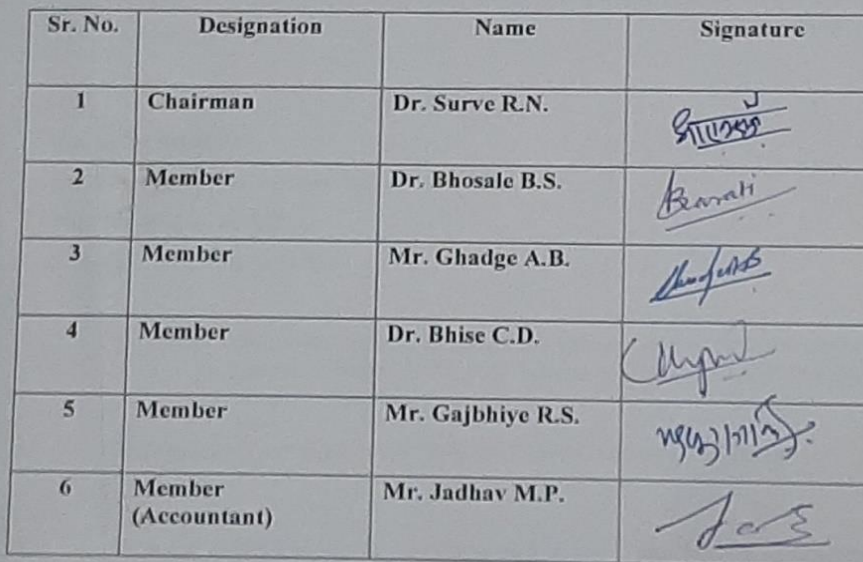 Sr. No. Designation Name Signature
1 Chairman Dr. Surve R.N.
2 Member Dr. Bhosale B.S.
3 Member Mr. Ghadge A.B.
4 Member Dr. Bhise C.D.
5 Member Mr. Gajbhiye R.S.
6 Member Mr. Jadhav M.P.
(Accountant)